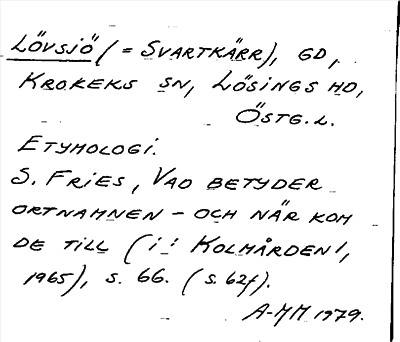 Lövsjö (= Svartkärr), gd,
Krokeks sn, Lösings hd,
Östg.l.
Etymologi.
S. Fries, Vad betyder
ortnamnen – och när kom
de till (i: Kolmården),
1965), s. 66. (s. 62f).
A-MM 1979.